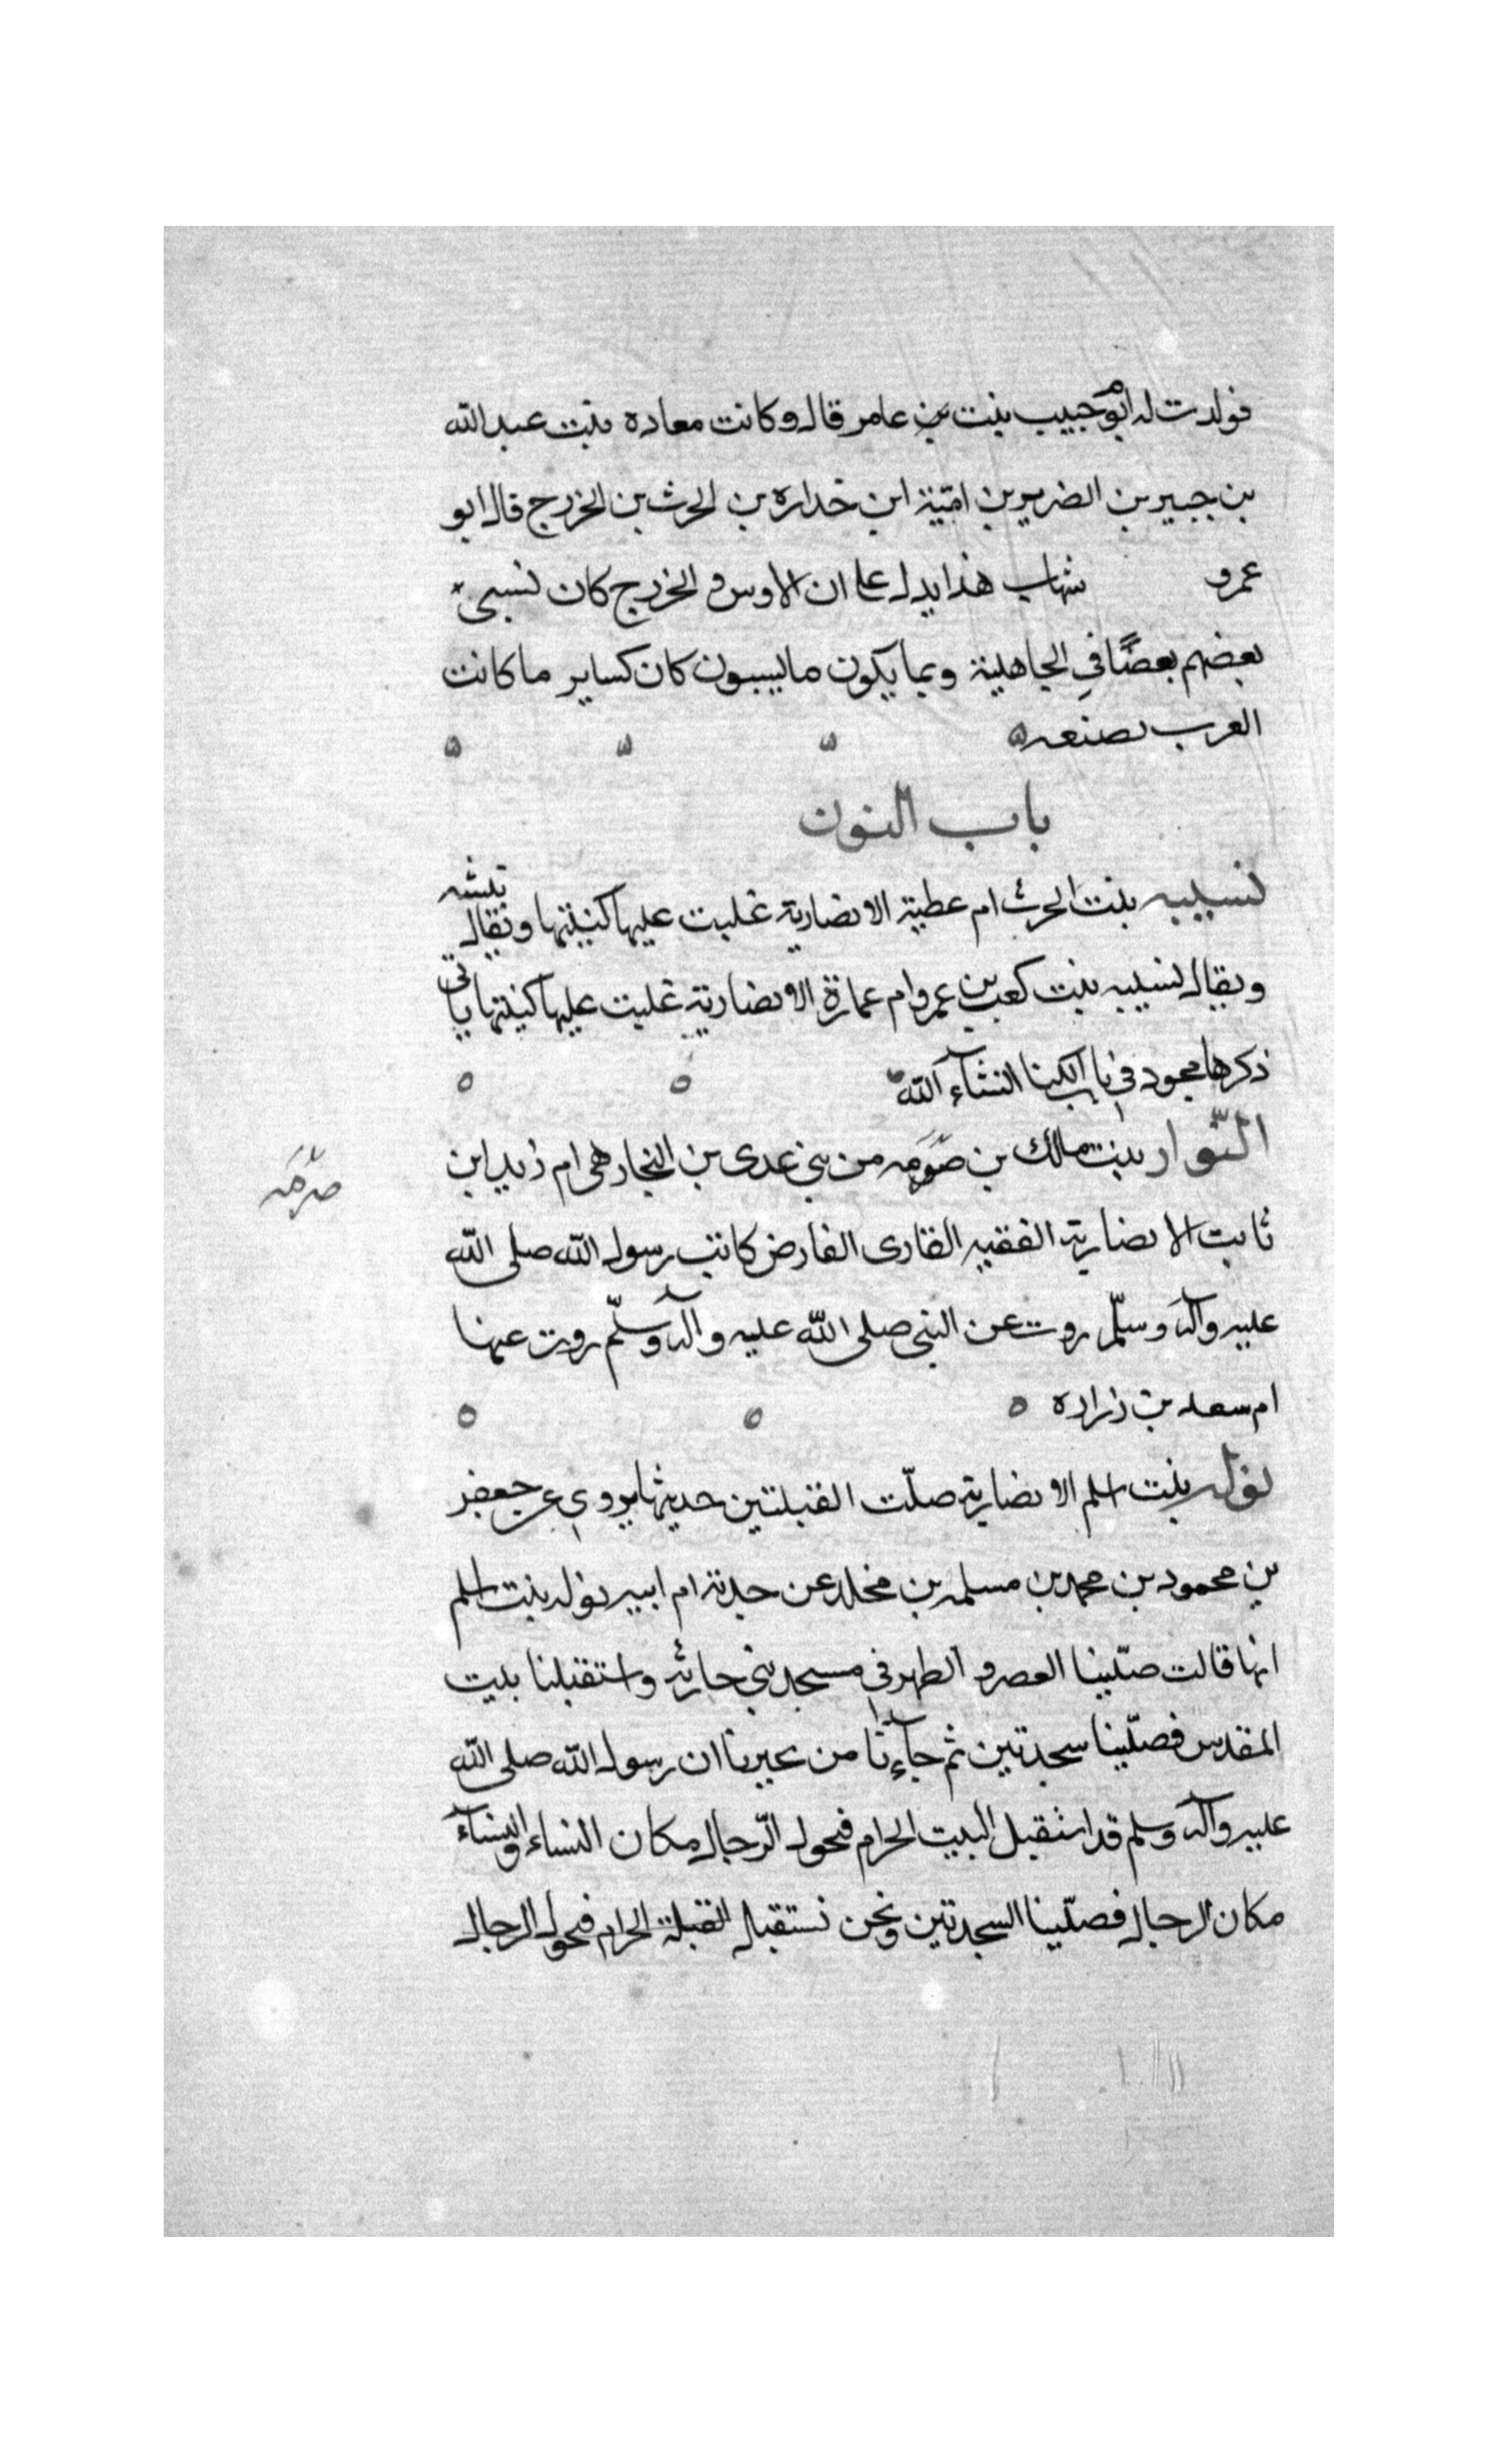 فولدت له ابوم حبيب بنت بن عامر قال وكانت معاده بنت عبد الله
بن جبير بن الضرير بن امّية ابن خداره بن الحرث بن الخزرج قال ابو
عمرو شهاب هذا يدل على ان الاوس و الخزرج كان نسبى
بعضهم بعضًا في الجاهلية وبما يكون ما ليسبون كان كساير ما كانت
العرب تصنعه
باب النون
نسيبه بنت الحرث ام عطية الانصارية غلبت عليها كنيتها ويقال نبيشه
ويقال نسيبه بنت كعب بن عمرو ام عمارة الانصارية غلبت عليها كنيتها ياتى
ذكرها مجود في باب الكنا انشآء الله
النّوار بنت مالك بن صرمه من بني عدى بن النجار هى ام زيد ابن
صرمه
ثابت الانصارية الفقيه القارى الفارض كاتب رسول الله صلى الله
عليه وآله وسلّم روت عن النبي صلى الله عليه وآله وسلّم روت عنها
ام سعد بن زراره
نوله بنت اسلم الانصارية صلّت القبلتين حديثها يروى عن جعفر
بن محمود بن محمد بن مسلمه بن مخلد عن جدته ام ابيه نوله بنت اسلم
انها قالت صلّينا العصر و الظهر في مسجد بني حارثه واستقبلنا بيت
المقدس فصلّينا سجدتين ثم جآءنا من يخبرنا ان رسول الله صلى الله
عليه وآله وسلم قد استقبل البيت الحرام فتحول الرّجال مكان النساء والنسآء
مكان الرجال فصلّينا السجدتين ونحن نستقبل القبلة الحرام فتحول الرجال